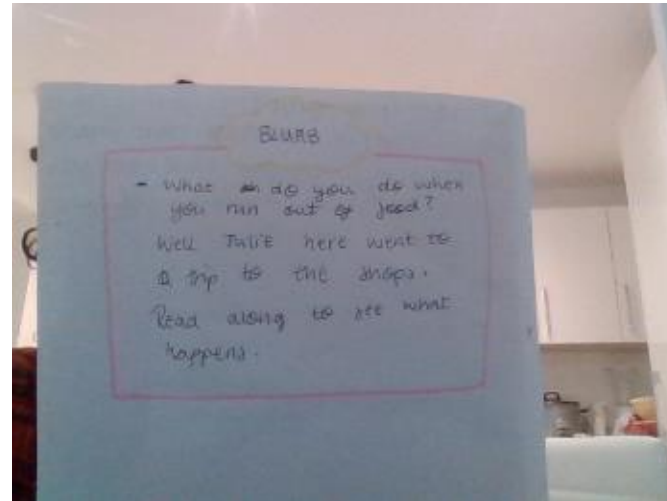 BLURB
- What do you do when
you run out of food?
Well Julie here went to
a trip to the shops.
Read along to see what
happens.